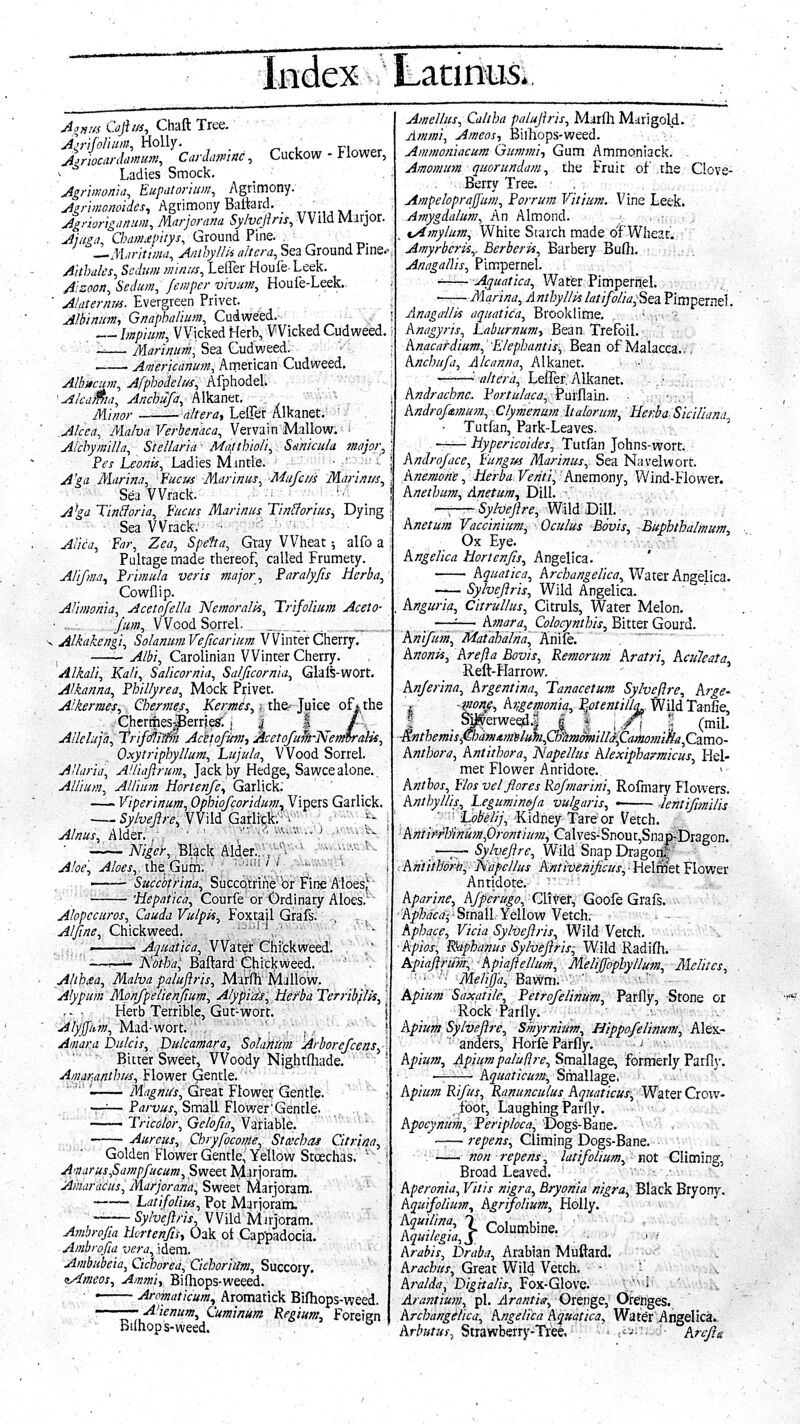 Index Latinus.
Agnus Castus, Chast Tree.
Agrifolium, Holly.
Agriocardamum, Cardamine, Cuckow-Flower,
Ladies Smock.
Agrimonia, Eupatorium, Agrimony.
Agrimonoides, Agrimony Bastard.
Agrioriganum, Marjorana Sylvestris, VVild Marjor.
Ajuga, Chamæpitys, Ground Pine.
—Maritima, Anthyllis altera, Sea Ground Pine.
Aithales, Sedum minus, Lesser House-Leek.
Aizoon, Sedum, semper vivum, House-Leek.
Alaternus. Evergreen Privet.
Albinum, Gnaphalium, Cudweed.
—Impium, VVicked Herb, VVicked Cudweed.
— Marinum, Sea Cudweed.
— Americanum, American Cudweed.
Albucum, Asphodelus, Asphodel.
Alcanna, Anchusa, Alkanet.
Minor — altera, Lesser Alkanet.
Alcea, Malva Verbenaca, Vervain Mallow.
Alchymilla, Stellaria Matthioli, Sanicula major,
Pes Leonis, Ladies Mantle.
Alga Marina, Fucus Marinus, Muscus Marinus,
Sea VVrack.
Alga Tinctoria, Fucus Marinus Tinctorius, Dying
Sea VVrack.
Alica, Far, Zea, Spelta, Gray VVheat; also a
Pultage made thereof, called Frumety.
Alisma, Primula veris major, Paralysis Herba,
Cowslip.
Alimonia, Acetosella Nemoralis, Trifolium Aceto-
sum, VVood Sorrel.
Alkakengi, Solanum Vesicarium VVinter Cherry.
— Albi, Carolinian VVinter Cherry.
Alkali, Kali, Salicornia, Salsicornia, Glass-wort.
Alkanna, Phillyrea, Mock Privet.
Alkermes, Chermes, Kermes, the Juice of the
Chermes Berries.
Alleluja, Trifolium Acetosum, Acetosum Nemoralis,
Oxytriphyllum, Lujula, VVood Sorrel.
Allaria, Alliastrum, Jack by Hedge, Sawce alone.
Allium, Allium Hortense, Garlick.
— Viperinum, Ophioscoridum, Vipers Garlick.
— Sylvestre, VVild Garlick.
Alnus, Alder.
— Niger, Black Alder.
Aloe, Aloes, the Gum.
— Succotrina, Succotrine or Fine Aloes.
— Hepatica, Course or Ordinary Aloes.
Alopecuros, Cauda Vulpis, Foxtail Grass.
Alsine, Chickweed.
— Aquatica, VVater Chickweed.
— Notha, Bastard Chickweed.
Althæa, Malva palustris, Marsh Mallow.
Alypum Monspeliensium, Alypias, Herba Terribilis,
Herb Terrible, Gut-wort.
Alyssum, Mad-wort.
Amara Dulcis, Dulcamara, Solanum Arborescens,
Bitter Sweet, VVoody Nightshade.
Amaranthus, Flower Gentle.
— Magnus, Great Flower Gentle.
— Parvus, Small Flower Gentle.
— Tricolor, Gelosia, Variable.
— Aureus, Chrysocome, Stœchas Citrina,
Golden Flower Gentle, Yellow Stœchas.
Anarus, Sampsucum, Sweet Marjoram.
Amaracus, Marjorana, Sweet Marjoram.
— Latifolius, Pot Marjoram.
— Sylvestris, VVild Marjoram.
Ambrosia Hortensis, Oak of Cappadocia.
Ambrosia vera, idem.
Ambubeia, Cichorea, Cichorium, Succory.
Ameos, Ammi, Bishops-weeed.
— Aromaticum, Aromatick Bishops-weed.
— Alienum, Cuminum Regium, Foreign
Bishops-weed.
Amellus, Caltha palustris, Marsh Marigold.
Ammi, Ameos, Bishops-weed.
Ammoniacum Gummi, Gum Ammoniack.
Amomum quorundam, the Fruit of the Clove-
Berry Tree.
Ampeloprassum, Porrum Vitium. Vine Leek.
Amygdalum, An Almond.
Amylum, White Starch made of Wheat.
Amyrberis, Berberis, Barbery Bush.
Anagallis, Pimpernel.
— Aquatica, Water Pimpernel.
— Marina, Anthyllis latifolia, Sea Pimpernel.
Anagallis aquatica, Brooklime.
Anagyris, Laburnum, Bean Trefoil.
Anacardium, Elephantis, Bean of Malacca.
Anchusa, Alcanna, Alkanet.
— altera, Lesser Alkanet.
Andrachne. Portulaca, Purslain.
Androsæmum, Clymenum Italorum, Herba Siciliana,
Tutsan, Park-Leaves.
— Hypericoides, Tutsan Johns-wort.
Androsace, Fungus Marinus, Sea Navelwort.
Anemone, Herba Venti, Anemony, Wind-Flower.
Anethum, Anetum, Dill.
— Sylvestre, Wild Dill.
Anetum Vaccinium, Oculus Bovis, Buphthalmum,
Ox Eye.
Angelica Hortensis, Angelica.
— Aquatica, Archangelica, Water Angelica.
— Sylvestris, Wild Angelica.
Anguria, Citrullus, Citruls, Water Melon.
— Amara, Colocynthis, Bitter Gourd.
Anisum, Matahalna, Anise.
Anonis, Aresta Bovis, Remorum Aratri, Aculeata,
Rest-Harrow.
Anserina, Argentina, Tanacetum Sylvestre, Arge-
mone, Argemonia, Potentilla, Wild Tansie,
Silverweed. (mil.
Anthemis, Chamæmelum, Chamomilla, Camomilla, Camo-
Anthora, Antithora, Napellus Alexipharmicus, Hel-
met Flower Antidote.
Anthos, Flos vel flores Rosmarini, Rosmary Flowers.
Anthyllis, Leguminosa vulgaris, — lentisimilis
Lobelij, Kidney Tare or Vetch.
Antirrhinum, Orontium, Calves-Snout, Snap-Dragon.
— Sylvestre, Wild Snap Dragon.
Antithora, Napellus Antivenificus, Helmet Flower
Antidote.
Aparine, Asperugo, Cliver, Goose Grass.
Aphaca, Small Yellow Vetch.
Aphace, Vicia Sylvestris, Wild Vetch.
Apios, Raphanus Sylvestris, Wild Radish.
Apiastrum, Apiastellum, Melissophyllum, Melites,
Melissa, Bawm.
Apium Saxatile, Petroselinum, Parsly, Stone or
Rock Parsly.
Apium Sylvestre, Smyrnium, Hipposelinum, Alex-
anders, Horse Parsly.
Apium, Apium palustre, Smallage, formerly Parsly.
— Aquaticum, Smallage.
Apium Risus, Ranunculus Aquaticus, Water Crow-
foot, Laughing Parsly.
Apocynum, Periploca, Dogs-Bane.
— repens, Climing Dogs-Bane.
— non repens, latifolium, not Climing,
Broad Leaved.
Aperonia, Vitis nigra, Bryonia nigra, Black Bryony.
Aquifolium, Agrifolium, Holly.
Aquilina, } Columbine.
Aquilegia,
Arabis, Draba, Arabian Mustard.
Arachus, Great Wild Vetch.
Aralda, Digitalis, Fox-Glove.
Arantium, pl. Arantia, Orenge, Orenges.
Archangelica, Angelica Aquatica, Water Angelica.
Arbutus, Strawberry-Tree.
Aresta